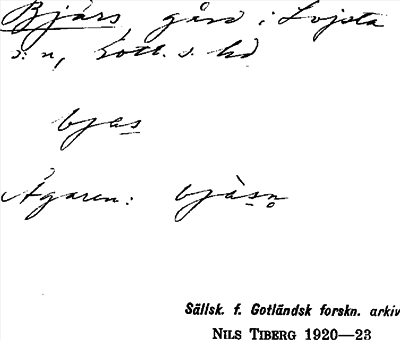 Bjärs, gård i Lojsta
s:n, Gotl. s. hd
bjas
Ägaren: bjàsn̥
Sällsk. f. Gotländsk forskn. arkiv
NILS TIBERG 1920—23